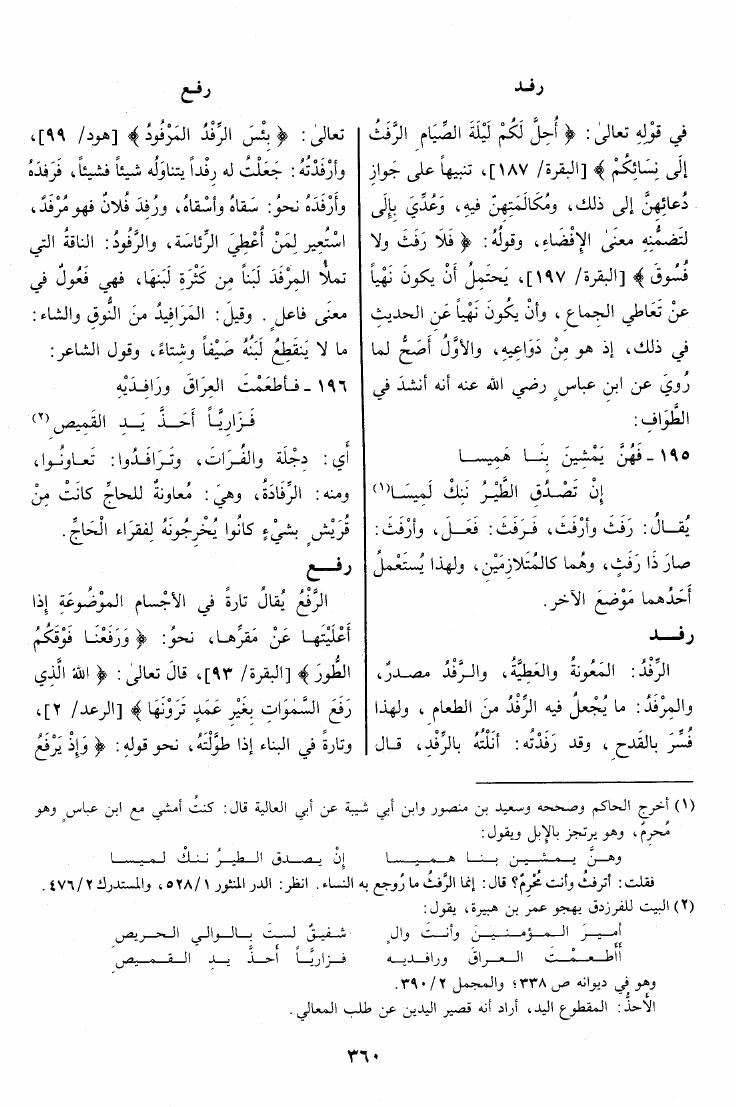 رفـد
رفـع
في قوْلِهِ تعالىٰ: ﴿ أُحِلَّ لَكُمْ لَيْلَةَ الصِّيَامِ الرَّفَثُ
إلى نِسَائِكُمْ ﴾ [البقرة/ ١٨٧]، تنبيهاً على جَوازِ
دُعائِهِنَّ إلى ذلك، ومُكَالَمَتِهِنَّ فيهِ، وَعُدِّيَ بِإِلَى
لتَضمُّنِهِ معنَى الإِفْضَاءِ، وقولُهُ: ﴿ فَلَا رَفَثَ ولا
فُسُوقَ ﴾ [البقرة/ ١٩٧]، يَحتمِلُ أنْ يكونَ نَهْياً
عنْ تَعَاطِي الجِماعِ، وأنْ يكُونَ نَهْياً عَنِ الحديثِ
في ذلك، إذ هو مِنْ دَوَاعِيهِ، والأوَّلُ أصَحُّ لما
رُويَ عن ابنِ عباسٍ رضي الله عنه أنه أنشدَ في
الطَّوَافِ:
١٩٥ - فَهُنَّ يَمْشِينَ بِنَـا هَمِيسـا
إِنْ تَصْـدُقِ الطَّيْـرُ نَنِكْ لَمِيسَـا(١)
يُقـالُ: رَفَثَ وأَرْفَثَ، فَـرَفَثَ: فَعَـلَ، وأرْفَثَ:
صارَ ذَا رَفَثٍ، وهُما كالمُتَلازِمَيْنِ، ولهذا يُستَعْملُ
أحَدُهما مَوْضعَ الآخر.
رفــد
الرِّفْدُ: المَعُونةُ والعَطِيَّةُ، والـرَّفْدُ مصـدرٌ،
والمِرْفَدُ: ما يُجْعلُ فيه الرِّفْدُ منَ الطعامِ، ولهذا
فُسِّرَ بالقَدحِ، وقد رَفَدْتُه: أنَلْتُهُ بالرِّفْدِ، قـال
تعالىٰ: ﴿ بِئْسَ الرِّفْدُ المَرْفُودُ ﴾ [هود/ ٩٩]،
وأرْفَدْتُهُ: جَعَلْتُ له رِفْداً يتناوَلُه شيئاً فشيئاً، فَرَفَدَهُ
وأَرْفَدَهُ نحوُ: سَقاهُ وأسْقاهُ، ورُفِدَ فُلانٌ فهو مُرْفَدٌ،
اسْتُعِير لِمَنْ أُعْطِيَ الرِّئاسَةَ، والرَّفُودُ: الناقةُ التي
تملأُ المِرْفَدَ لَبَناً مِن كَثْرَةِ لَبَنهَا، فهي فَعُولٌ في
معنَى فاعلٍ. وقيلَ: المَرَافِيدُ منَ النُّوقِ والشاء:
ما لا يَنقطِعُ لَبَنُهُ صَيْفاً وشِتاءً، وقول الشاعر:
١٩٦ - فـأطعَمْتَ العِـراقَ وَرَافِـدَيْهِ
فَـزارِيّـاً أَحَـذَّ يَـدِ القَمِيص(٢)
أي: دِجْلَةَ والفُـرَاتَ، وتَـرَافَـدُوا: تَعـاوَنُـوا،
ومنه: الرِّفَادَةُ، وهيَ: مُعاوَنةٌ للحاجِّ كانَتْ مِنْ
قُرَيْشٍ بشيْءٍ كانُوا يُخْرِجُونَهُ لِفقراءِ الْحَاجِّ.
رفــع
الرَّفْعُ يُقالُ تارةً في الأجْسام الموْضُوعَةِ إذا
أعْلَيْتَهـا عَنْ مَقرِّهـا، نَحوُ: ﴿ وَرَفَعْنَـا فَوْقَكُمُ
الطُّورَ ﴾ [البقرة/ ٩٣]، قالَ تعالىٰ: ﴿ اللهُ الَّذِي
رَفَعَ السَّمٰوَاتِ بِغَيْرِ عَمَدٍ تَرَوْنَهَا ﴾ [الرعد/ ٢]،
وتارةً في البناء إذا طَوَّلْتَهُ، نحو قولِهِ: ﴿ وَإِذْ يَرْفَعُ
(١) أخرج الحاكم وصححه وسعيد بن منصور وابن أبي شيبة عن أبي العالية قال: كنتُ أمشي مع ابن عباسٍ وهو
مُحرِمٌ، وهو يرتجز بالإبل ويقول:
وهـنَّ يـمـشـيـن بـنـا هـمـيـسـا إنْ يـصـدق الـطـيـرُ نـنـكْ لـمـيـسـا
فقلت: أترفثُ وأنت مُحْرِمٌ؟ قال: إنما الرَّفثُ ما رُوجع به النساء. انظر: الدر المنثور ١/ ٥٢٨، والمستدرك ٢/ ٤٧٦.
(٢) البيت للفرزدق يهجو عمر بن هبيرة، يقول:
أمـيـرَ الـمـؤمـنـيـنَ وأنـتَ والٍ شـفـيـقٌ لـستَ بـالـوالـي الـحـريـصِ
أأطـعـمـتَ الـعـراق ورافـديـه فـزاريّـاً أحـذَّ يـدِ الـقـمـيـصِ
وهو في ديوانه ص ٣٣٨؛ والمجمل ٢/ ٣٩٠.
الأحذُّ: المقطوع اليد، أراد أنه قصير اليدين عن طلب المعالي.
٣٦٠